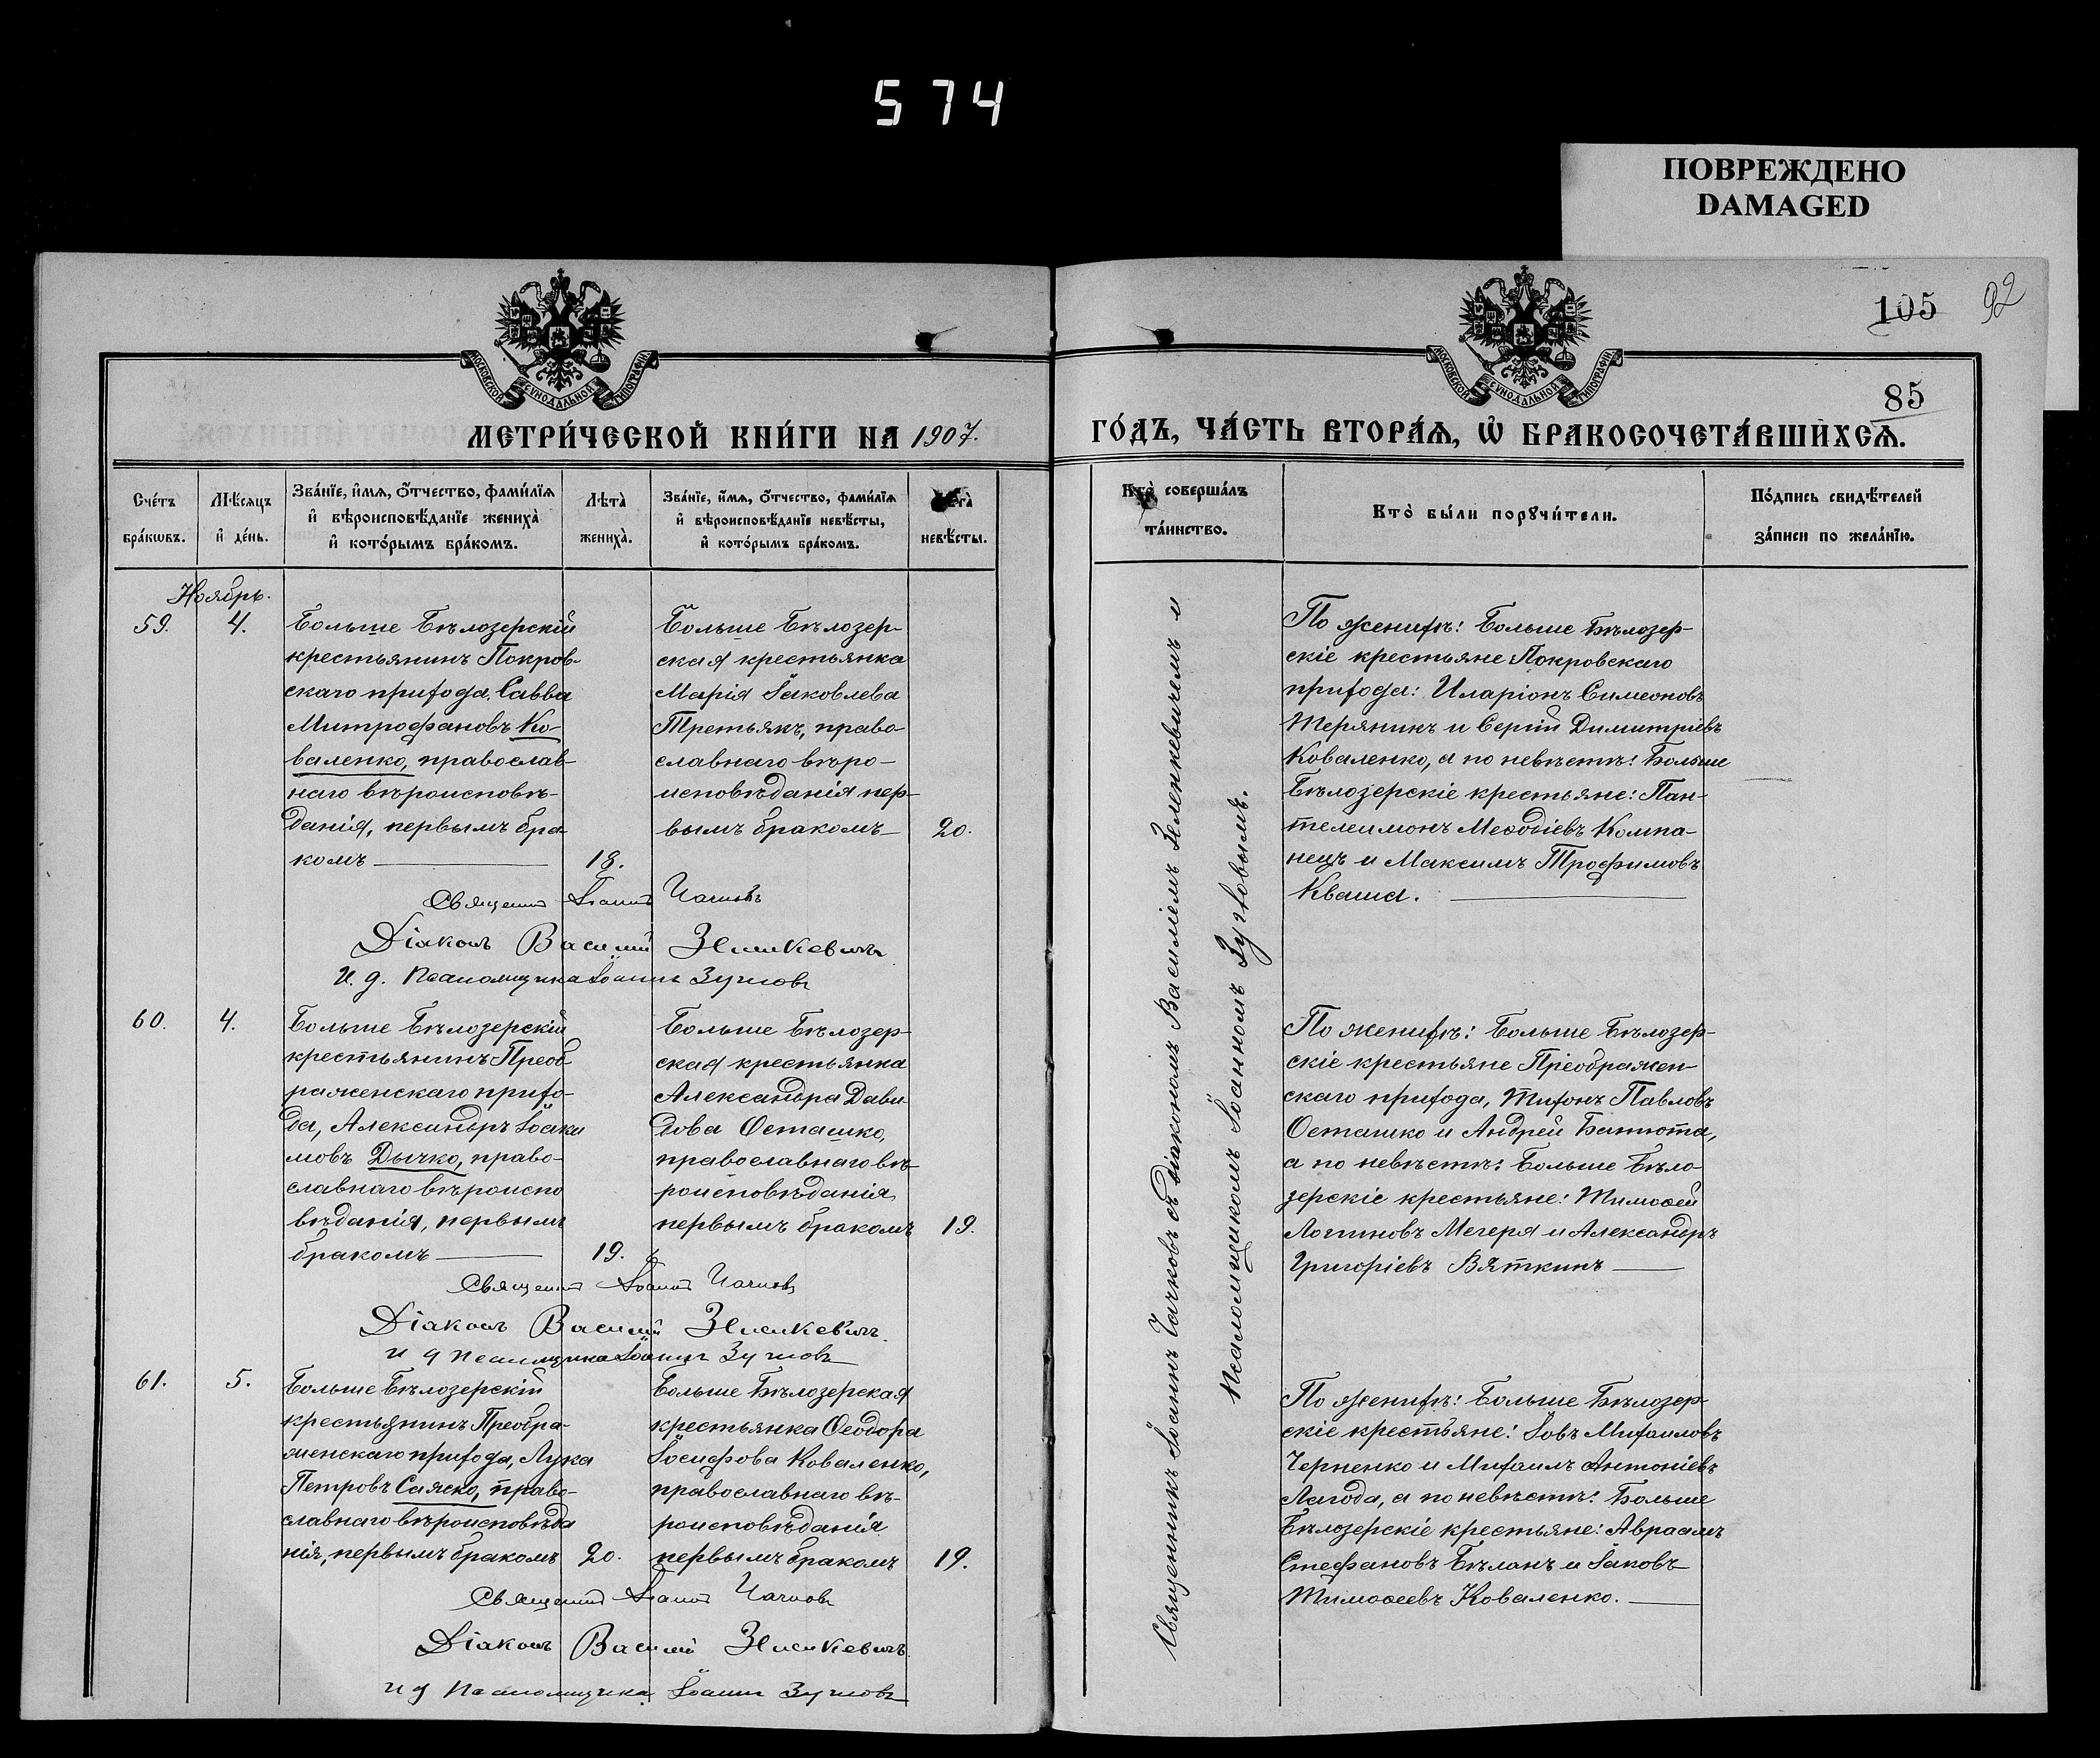 574
ПОВРЕЖДЕНО
DAMAGED
105 92
85
МОСКОВСКОЙ СѴНОДАЛЬНОЙ ТИПОГРАФІИ
МОСКОВСКОЙ СѴНОДАЛЬНОЙ ТИПОГРАФІИ
МЕТРИ́ЧЕСКОЙ КНИ́ГИ НА 1907.
ГО́ДЪ, ЧА́СТЬ ВТОРА́Ѧ, Ѽ БРАКОСОЧЕТА́ВШИХСѦ.
Сче́тъ
бра́кѡвъ.
Мѣ́сяцъ
и҆ де́нь.
Зва́нїе, и҆́мѧ, ѻ҆́тчество, фами́лїѧ
и҆ вѣроисповѣ́данїе жениха̀
и҆ кото́рымъ бра́комъ.
Лѣта̀
жениха̀.
Зва́нїе, и҆́мѧ, ѻ҆́тчество, фами́лїѧ
и҆ вѣроисповѣ́данїе невѣ́сты,
и҆ кото́рымъ бра́комъ.
невѣ́сты.
Кто̀ соверша́лъ
та́инство.
Кто̀ бы́ли порꙋчи́тели.
По́дпись свидѣ́телей
за́писи по жела́нїю.
Ноябрь.
59. 4.
Больше Бѣлозерскій
крестьянинъ Покров-
скаго прихода, Савва
Митрофановъ Ко-
валенко, православ-
наго вѣроисповѣ-
данія, первымъ бра-
комъ 18.
Больше Бѣлозер-
ская крестьянка
Марія Іаковлева
Третьякъ, право-
славнаго вѣро-
исповѣданія пер-
вымъ бракомъ 20.
По женихѣ: Больше Бѣлозер-
скіе крестьяне Покровскаго
прихода: Иларіонъ Симеоновъ
Теряникъ и Сергій Димитріевъ
Коваленко, а по невѣстѣ: Больше
Бѣлозерскіе крестьяне: Пан-
телеимонъ Меѳодіевъ Компа-
нецъ и Максимъ Трофимовъ
Кваша.
Діаконъ Василій Зеленкевичъ
И. д. Псаломщика Іоаннъ
60. 4.
Больше Бѣлозерскій
крестьянинъ Преоб-
раженскаго прихо-
да, Александръ Іоаки
мовъ Дычко, право-
славнаго вѣроиспо
вѣданія, первымъ
бракомъ 19.
Больше Бѣлозер-
ская крестьянка
Александра Дави
дова Осташко,
православнаго вѣ-
роисповѣданія
первымъ бракомъ 19.
По женихѣ: Больше Бѣлозер-
скіе крестьяне Преображен-
скаго прихода, Тихонъ Павловъ
Осташко и Андрей Батюта,
а по невѣстѣ: Больше Бѣло
зерскіе крестьяне: Тимоѳей
Логиновъ Мегеря и Александръ
Григоріевъ Вяткинъ
Діаконъ Василій Зеленкевичъ
и д Псаломщика Іоаннъ
61. 5.
Больше Бѣлозерскій
крестьянинъ Преобра-
женскаго прихода, Лука
Петровъ Саяско, право-
славнаго вѣроисповѣда
нія, первымъ бракомъ 20.
Больше Бѣлозерская
крестьянка Ѳеодора
Іосифова Коваленко,
православнаго вѣ-
роисповѣданія
первымъ бракомъ 19.
По женихѣ: Больше Бѣлозер-
скіе крестьяне: Іовъ Михаиловъ
Черненко и Михаилъ Антоніевъ
Лагода, а по невѣстѣ: Больше
Бѣлозерскіе крестьяне: Авраамъ
Стефановъ Бѣланъ и Іаковъ
Тимоѳеевъ Коваленко.
Діаконъ Василій Зеленкевичъ
и д Псаломщика Іоаннъ
Священникъ Іоаннъ съ діакономъ Василіемъ Зеленкевичемъ и
Псаломщикомъ Іоанномъ